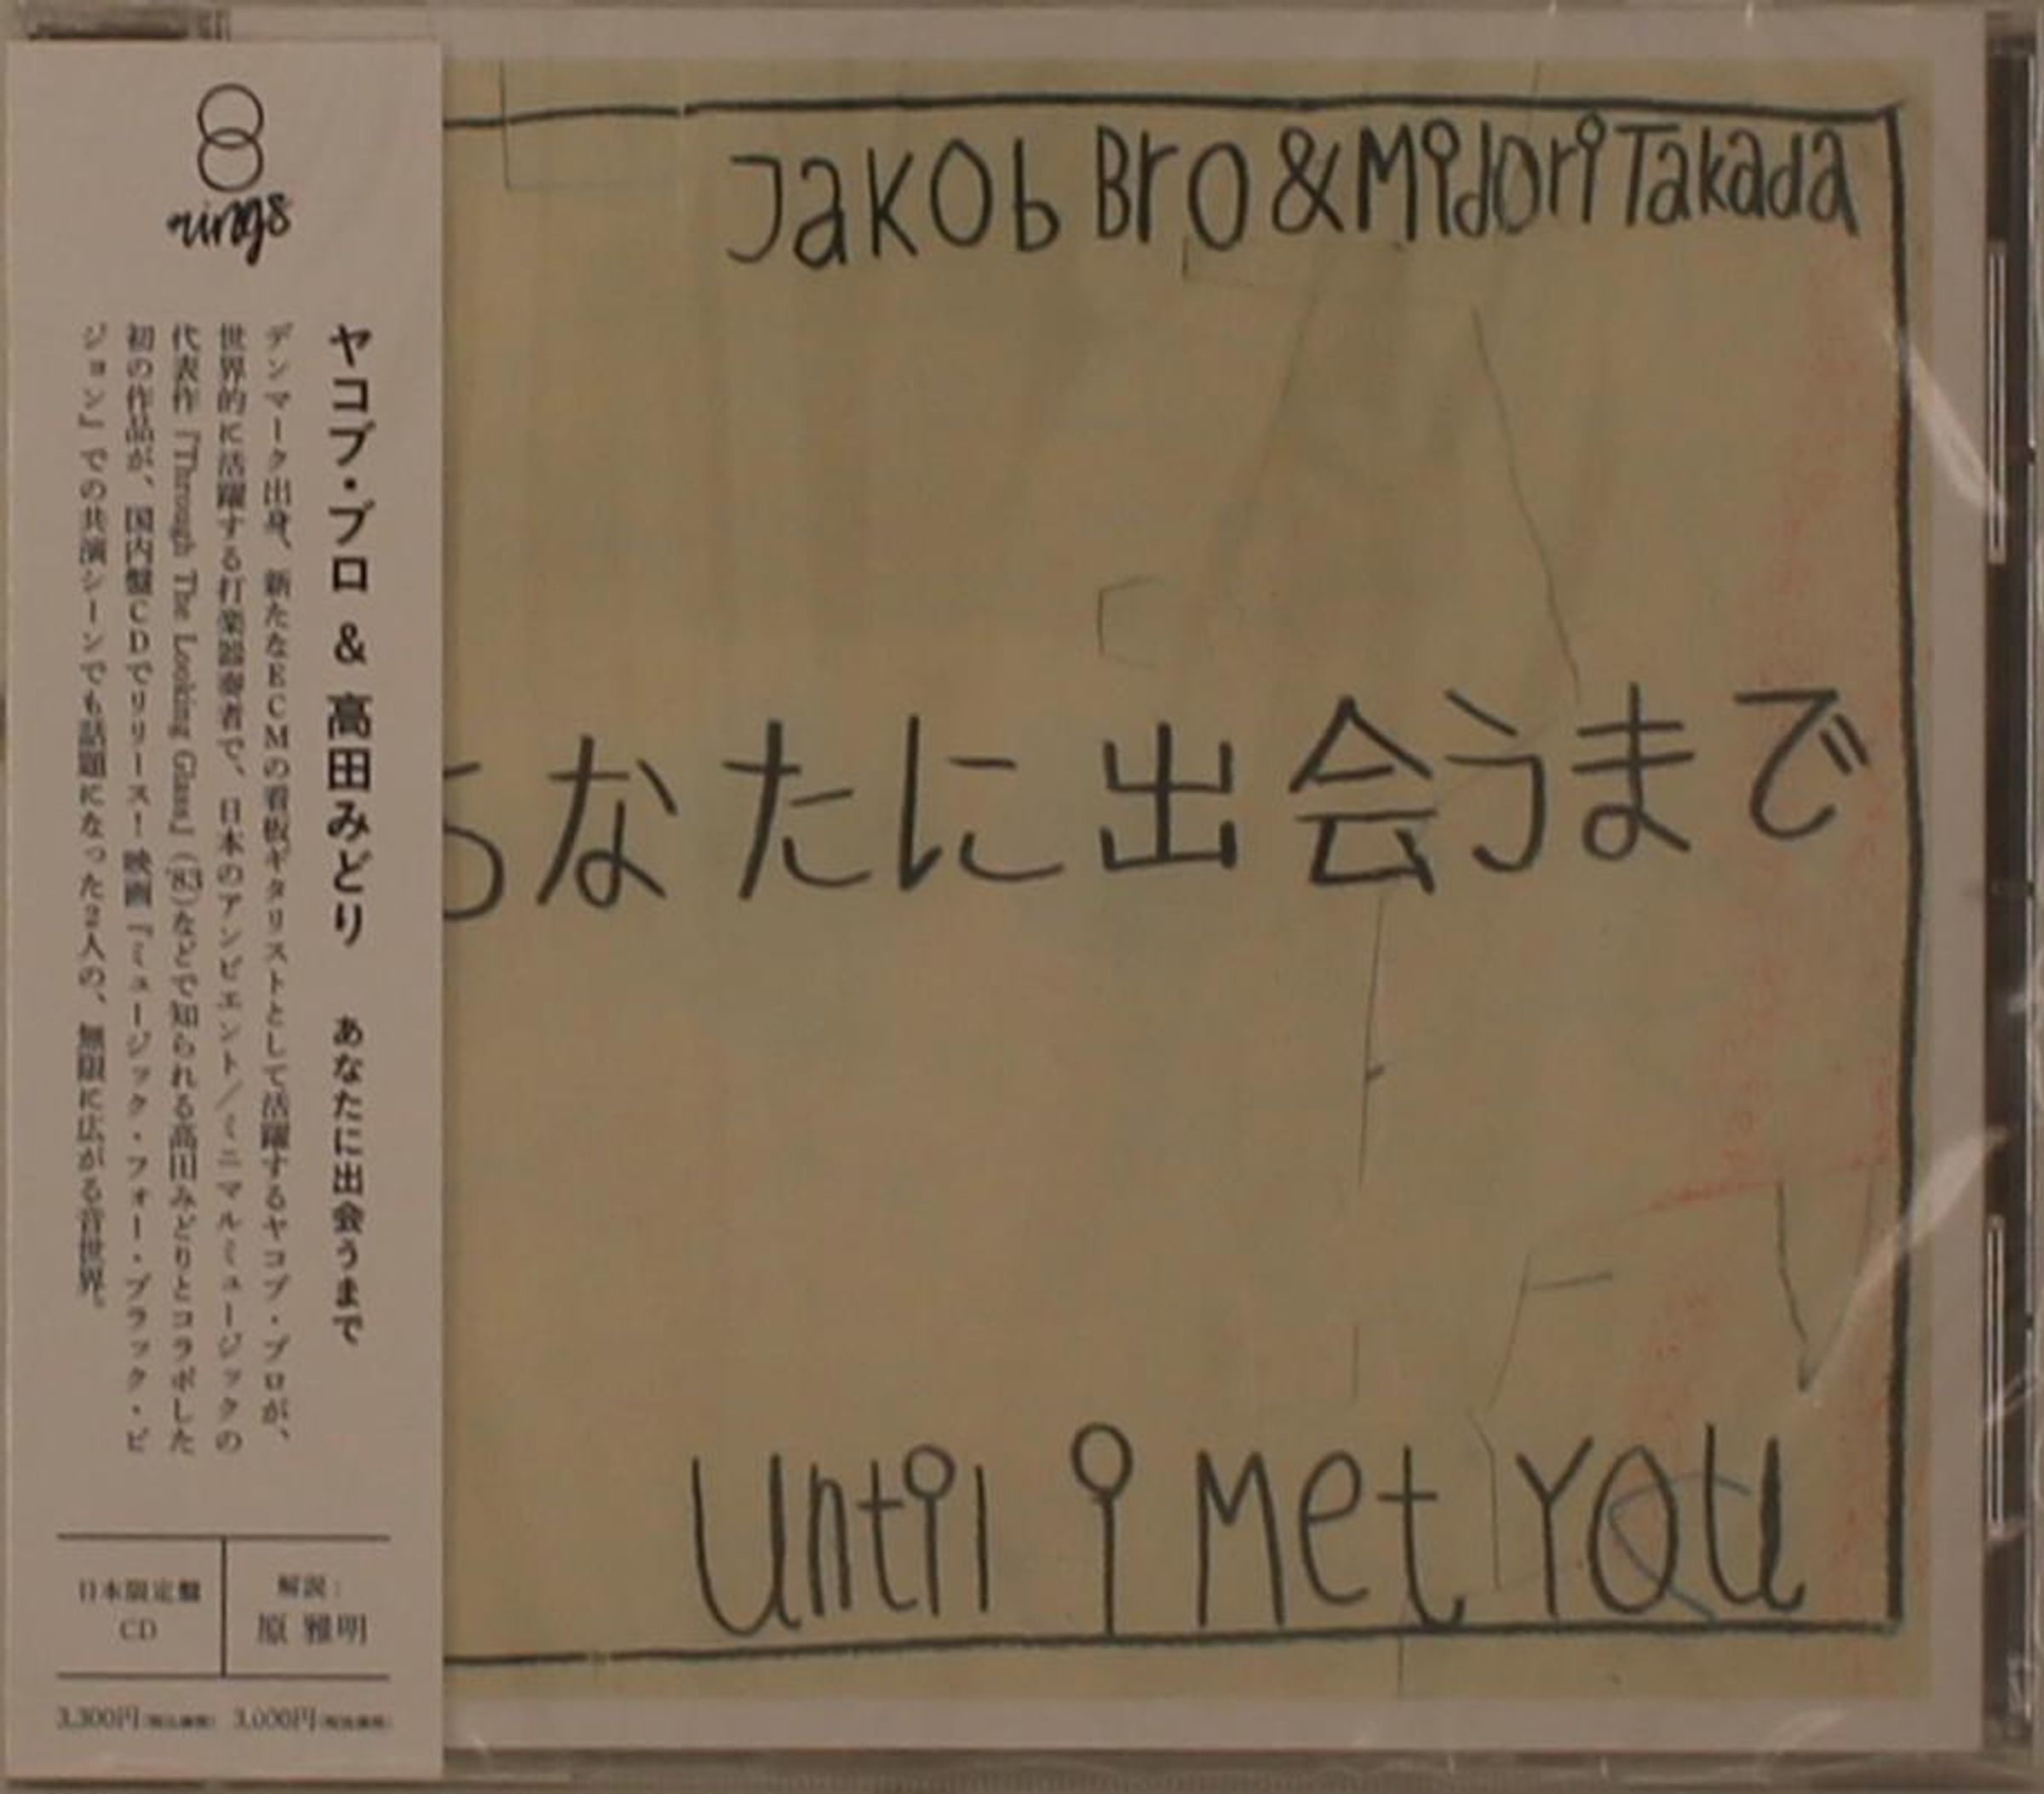 rings
ヤコブ・ブロ & 高田みどり あなたに出会うまで
デンマーク出身、新たなECMの看板ギタリストとして活躍するヤコブ・ブロが、
世界的に活躍する打楽器奏者で、日本のアンビエント／ミニマルミュージックの
代表作『Through The Looking Glass』('83)などで知られる高田みどりとコラボした
初の作品が、国内盤CDでリリース！映画『ミュージック・フォー・ブラック・ピ
ジョン』での共演シーンでも話題になった2人の、無限に広がる音世界。
解説：
原 雅明
日本限定盤
CD
3,300円(税込価格) 3,000円(税抜価格)
Jakob Bro & Midori Takada
なたに出会うまで
Until i Met You